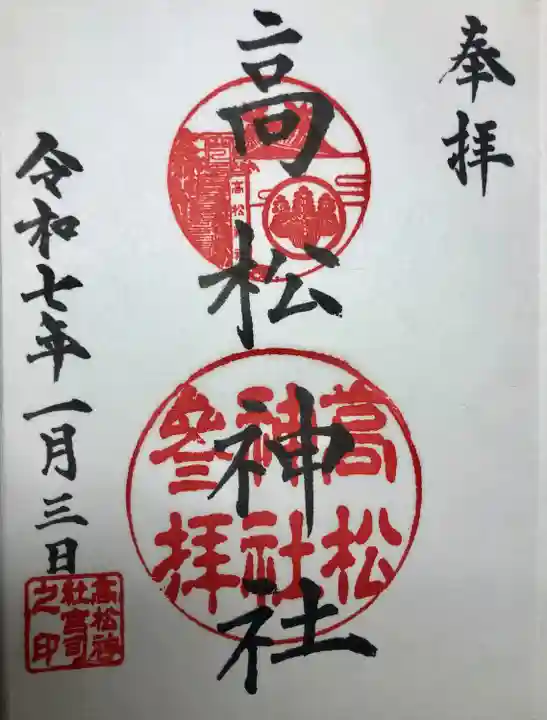 奉拝
高松神社
高松
高松
神社
参拝
令和七年一月三日
高松神
社宮司
之印